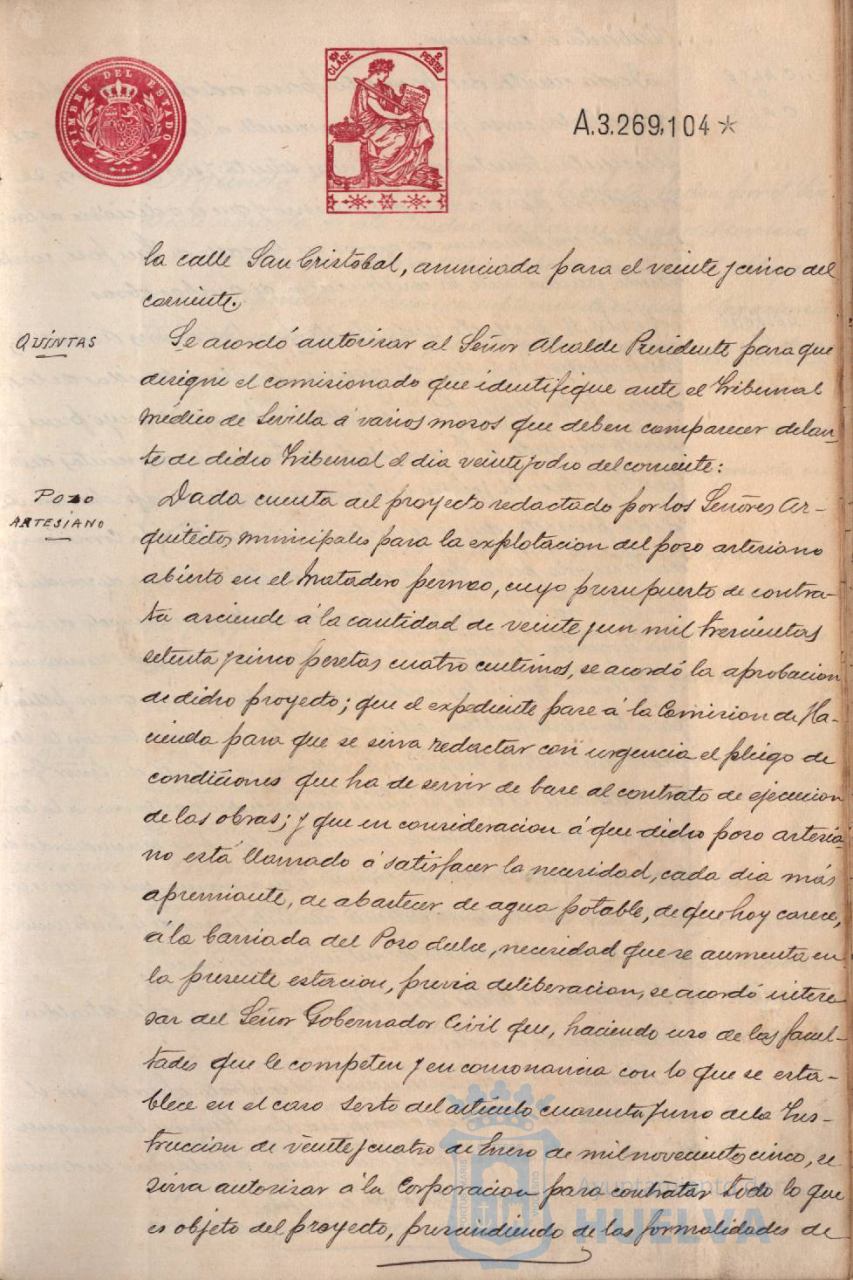 TIMBRE DEL ESTADO
10ª CLASE
2 PESETAS
A.3.269,104*
la calle San Cristobal, anunciada para el veinte y cinco del
corriente.
QUINTAS
Se acordó autorizar al Señor Alcalde Presidente para que
designe el comisionado que identifique ante el Tribunal
Médico de Sevilla á varios mosos que deben comparecer delan-
te de dicho Tribunal el dia veinte y ocho del corriente:
POZO
ARTESIANO
Dada cuenta del proyecto redactado por los Señores Ar-
quitectos municipales para la explotacion del poso artesiano
abierto en el Matadero , cuyo presupuesto de contra-
ta asciende á la cantidad de veinte y un mil trescientas
setenta y cinco pesetas cuatro centimos, se acordó la aprobacion
de dicho proyecto; que el expediente pase á la Comision de Ha-
cienda para que se sirva redactar con urgencia el pliego de
condiciones que ha de servir de base al contrato de ejecucion
de las obras; y que en consideracion á que dicho poso artesia-
no está llamado á satisfacer la necesidad, cada dia más
apremiante, de abastecer de agua potable, de que hoy carece,
á la barriada del Poso dulce, necesidad que se aumenta en
la presente estacion, previa deliberacion, se acordó intere
sar del Señor Gobernador Civil que, haciendo uso de las facul-
tades que le competen y en consonancia con lo que se esta-
blece en el caso sesto del artículo cuarenta y uno de la Ins-
truccion de veinte y cuatro de Enero de mil novecientos cinco, se
sirva autorizar á la Corporacion para contratar todo lo que
es objeto del proyecto, prescindiendo de las formalidades de
Ayuntamiento de
HUELVA